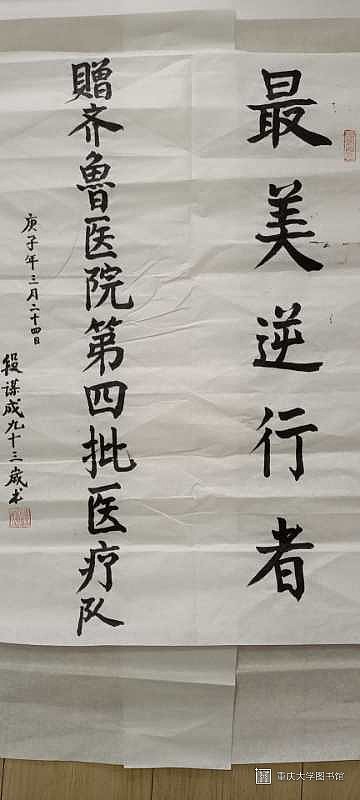 最美逆行者
赠齐鲁医院第四批医疗队
庚子年三月二十四日
段谋成九十三岁书
重庆大学图书馆